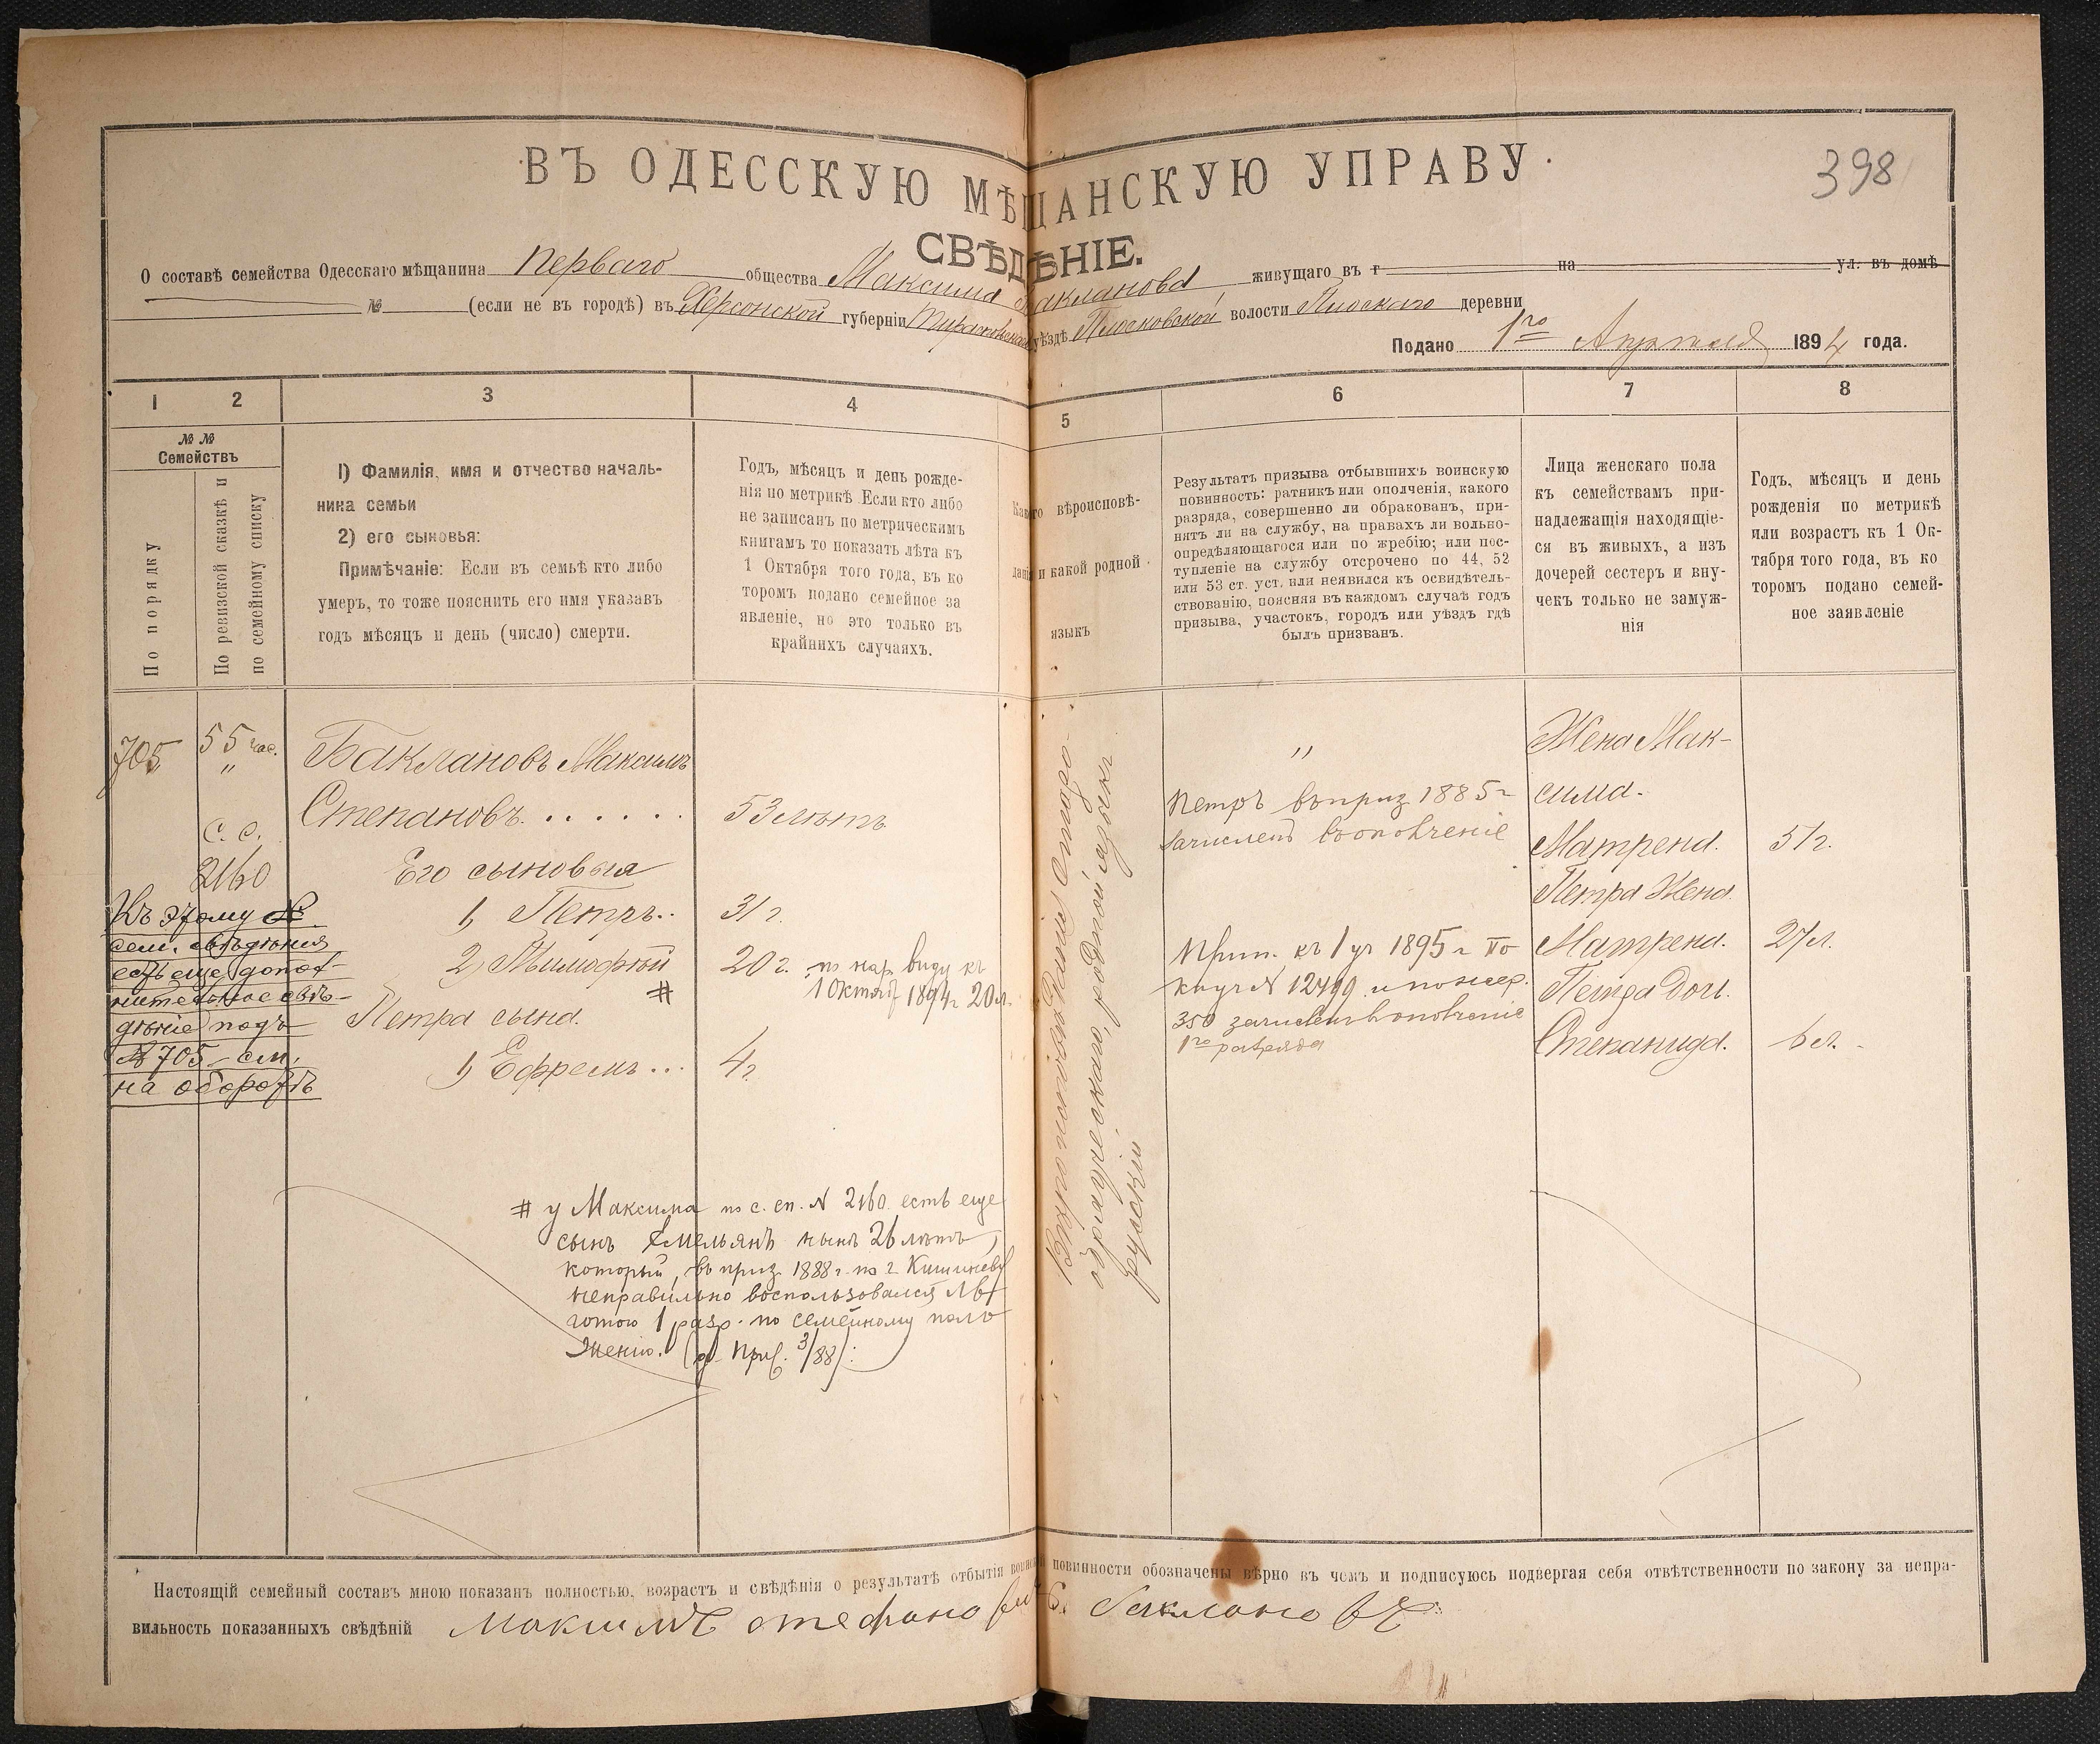 398
ВЪ ОДЕССКУЮ МѢЩАНСКУЮ УПРАВУ.
СВѢДѢНІЕ.
О составѣ семейства Одесскаго мѣщанина перваго общества Максима Бакланова живущаго въ г на ул. въ домѣ
№ (если не въ городѣ) въ Херсонской губерніи Тираспольскаго уѣздѣ Плосковской волости Плоскаго деревни
Подано 1го Апрѣля 1894 года.
1 2 3 4 5 6 7 8
№ № Семействъ
По порядку
По ревизской сказкѣ и
по семейному списку
1) Фамилія, имя и отчество началь-
ника семьи
2) его сыновья:
Примѣчаніе: Если въ семьѣ кто либо
умеръ, то тоже пояснить его имя указавъ
годъ мѣсяцъ и день (число) смерти.
Годъ, мѣсяцъ и день рожде-
нія по метрикѣ Если кто либо
не записанъ по метрическимъ
книгамъ то показать лѣта къ
1 Октября того года, въ ко
торомъ подано семейное за
явленіе, но это только въ
крайнихъ случаяхъ.
Какого вѣроисповѣ-
данія и какой родной
языкъ
Результатъ призыва отбывшихъ воинскую
повинность: ратникъ или ополченія, какого
разряда, совершенно ли обракованъ, при-
нятъ ли на службу, на правахъ ли вольно-
опредѣляющагося или по жребію; или пос-
тупленіе на службу отсрочено по 44, 52
или 53 ст. уст. или неявился къ освидѣтель-
ствованію, поясняя въ каждомъ случаѣ годъ
призыва, участокъ, городъ или уѣздъ гдѣ
былъ призванъ.
Лица женскаго пола
къ семействамъ при-
надлежащія находящіе-
ся въ живыхъ, а изъ
дочерей сестеръ и вну-
чекъ только не замуж-
нія
Годъ, мѣсяцъ и день
рожденія по метрикѣ
или возрастъ къ 1 Ок-
тября того года, въ ко
торомъ подано семей-
ное заявленіе
705
55 час.
"
с. с.
2160
Къ этому №
сем. свѣдѣнія
есть еще допол-
нительное свѣ-
дѣніе подъ
№ 705 см.
на оборотѣ
Баклановъ Максимъ
Степановъ. . . . . . 53 лѣтъ
Его сыновья
1, Петръ.. 31 г.
2, Тимофѣй 20 г. по нар. виду къ
# 1 Октяб 1894 г 20 л.
Петра сына.
1, Ефремъ... 4 г.
# у Максима по с. сп. N 2160. есть еще
сынъ Емельянъ нынѣ 26 лѣтъ,
который, въ приз. 1888 г. по г. Кишиневу
неправильно воспользовался ль-
готою 1 разр. по семейному поло
женію. (д. Приз. 3/88).
Вѣроисповѣданіе старо-
обрядческаго, родной языкъ
русскій
"
Петръ въ приз 1885 г
зачисленъ въ ополченіе
Прип. къ 1 уч 1895 г по
кпуч N 12499 и по жер.
350 зачисленъ въ ополченіе
1го разряда
Жена Мак-
сима.
Матрена. 51 г.
Петра Жена.
Матрена. 27 л.
Петра Доч.
Степанида. 6 л.
Настоящій семейный составъ мною показанъ полностью, возрастъ и свѣдѣнія о результатѣ отбытія воинской повинности обозначены вѣрно въ чемъ и подписуюсь подвергая себя отвѣтственности по закону за непра-
вильность показанныхъ свѣдѣній Максимъ Стефановъ Баклановъ